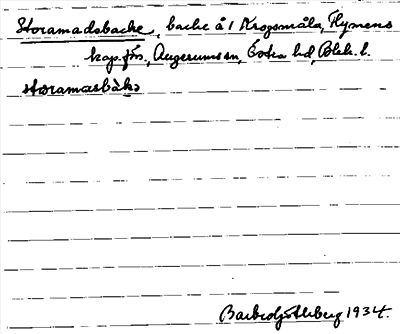 Storamadsbacke, backe å 1 Krogsmåla, Flymens
kap.förs., Augerums sn, Östra hd, Blek. l.
storamasbàkə
Barbro Götlberg 1934.